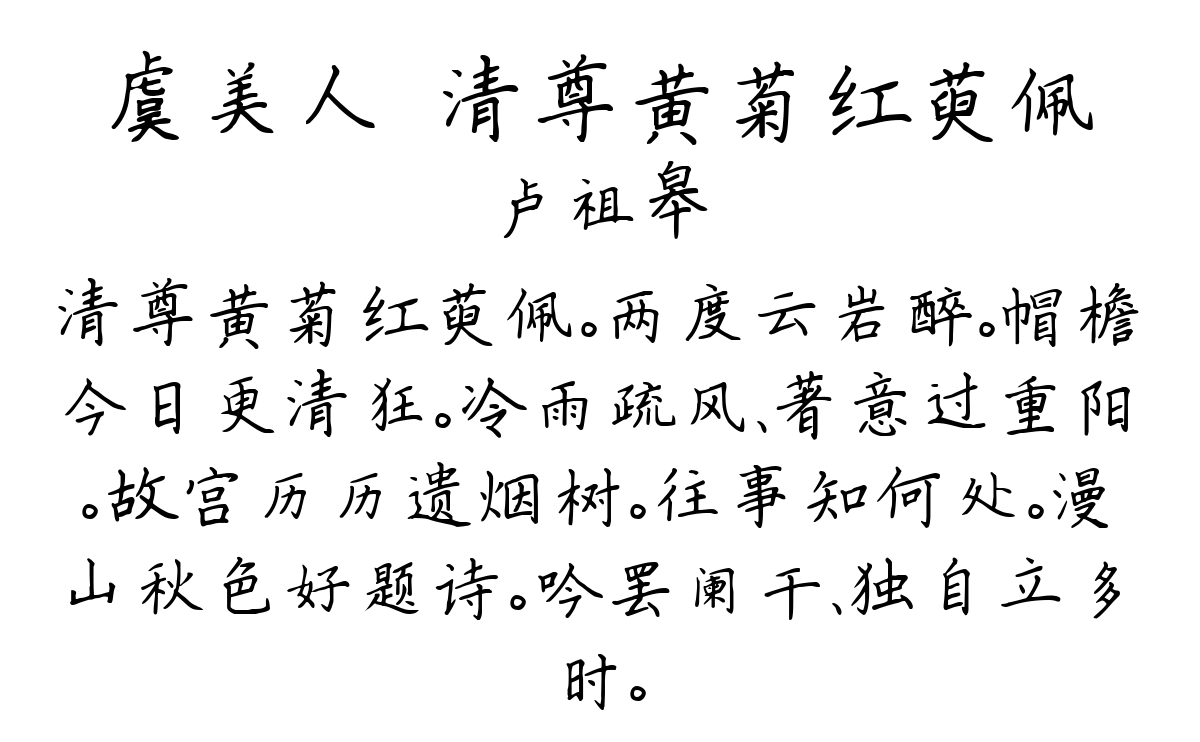 虞美人 清尊黄菊红萸佩
卢祖皋
清尊黄菊红萸佩。两度云岩醉。帽檐
今日更清狂。冷雨疏风、著意过重阳
。故宫历历遗烟树。往事知何处。漫
山秋色好题诗。吟罢阑干、独自立多
时。